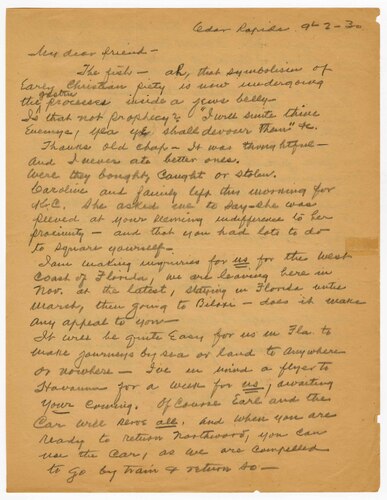 Cedar Rapids 9-2-30
My dear friend -
The fish - ah, that symbolism of
Early Christian piety is now undergoing
gastric
the processes inside a jews belly.
Is that not prophecy? "I will smite thine
Enemies, yea ye shall devour them" &c.
Thanks old chap - It was thoughtful -
and I never ate better ones.
Were they bought, caught or stolen.
Caroline and family left this morning for
K.C. She asked me to say she was
peeved at your seeming indifference to her
proximity - and that you had lots to do
to square yourself -
I am making inquiries for us for the West
Coast of Florida, we are leaving here in
Nov. at the latest, staying in Florida until
March, then going to Biloxi - does it make
any appeal to you -
It will be quite Easy for us in Fla to
make journeys by sea or land to anywhere
or nowhere - I've in mind a flyer to
Havanna for a week for us, awaiting
Your Coming. Of Course Earl and the
Car will serve all. and when you are
ready to return Northward, you can
use the Car, as we are compelled
to go by train & return so -